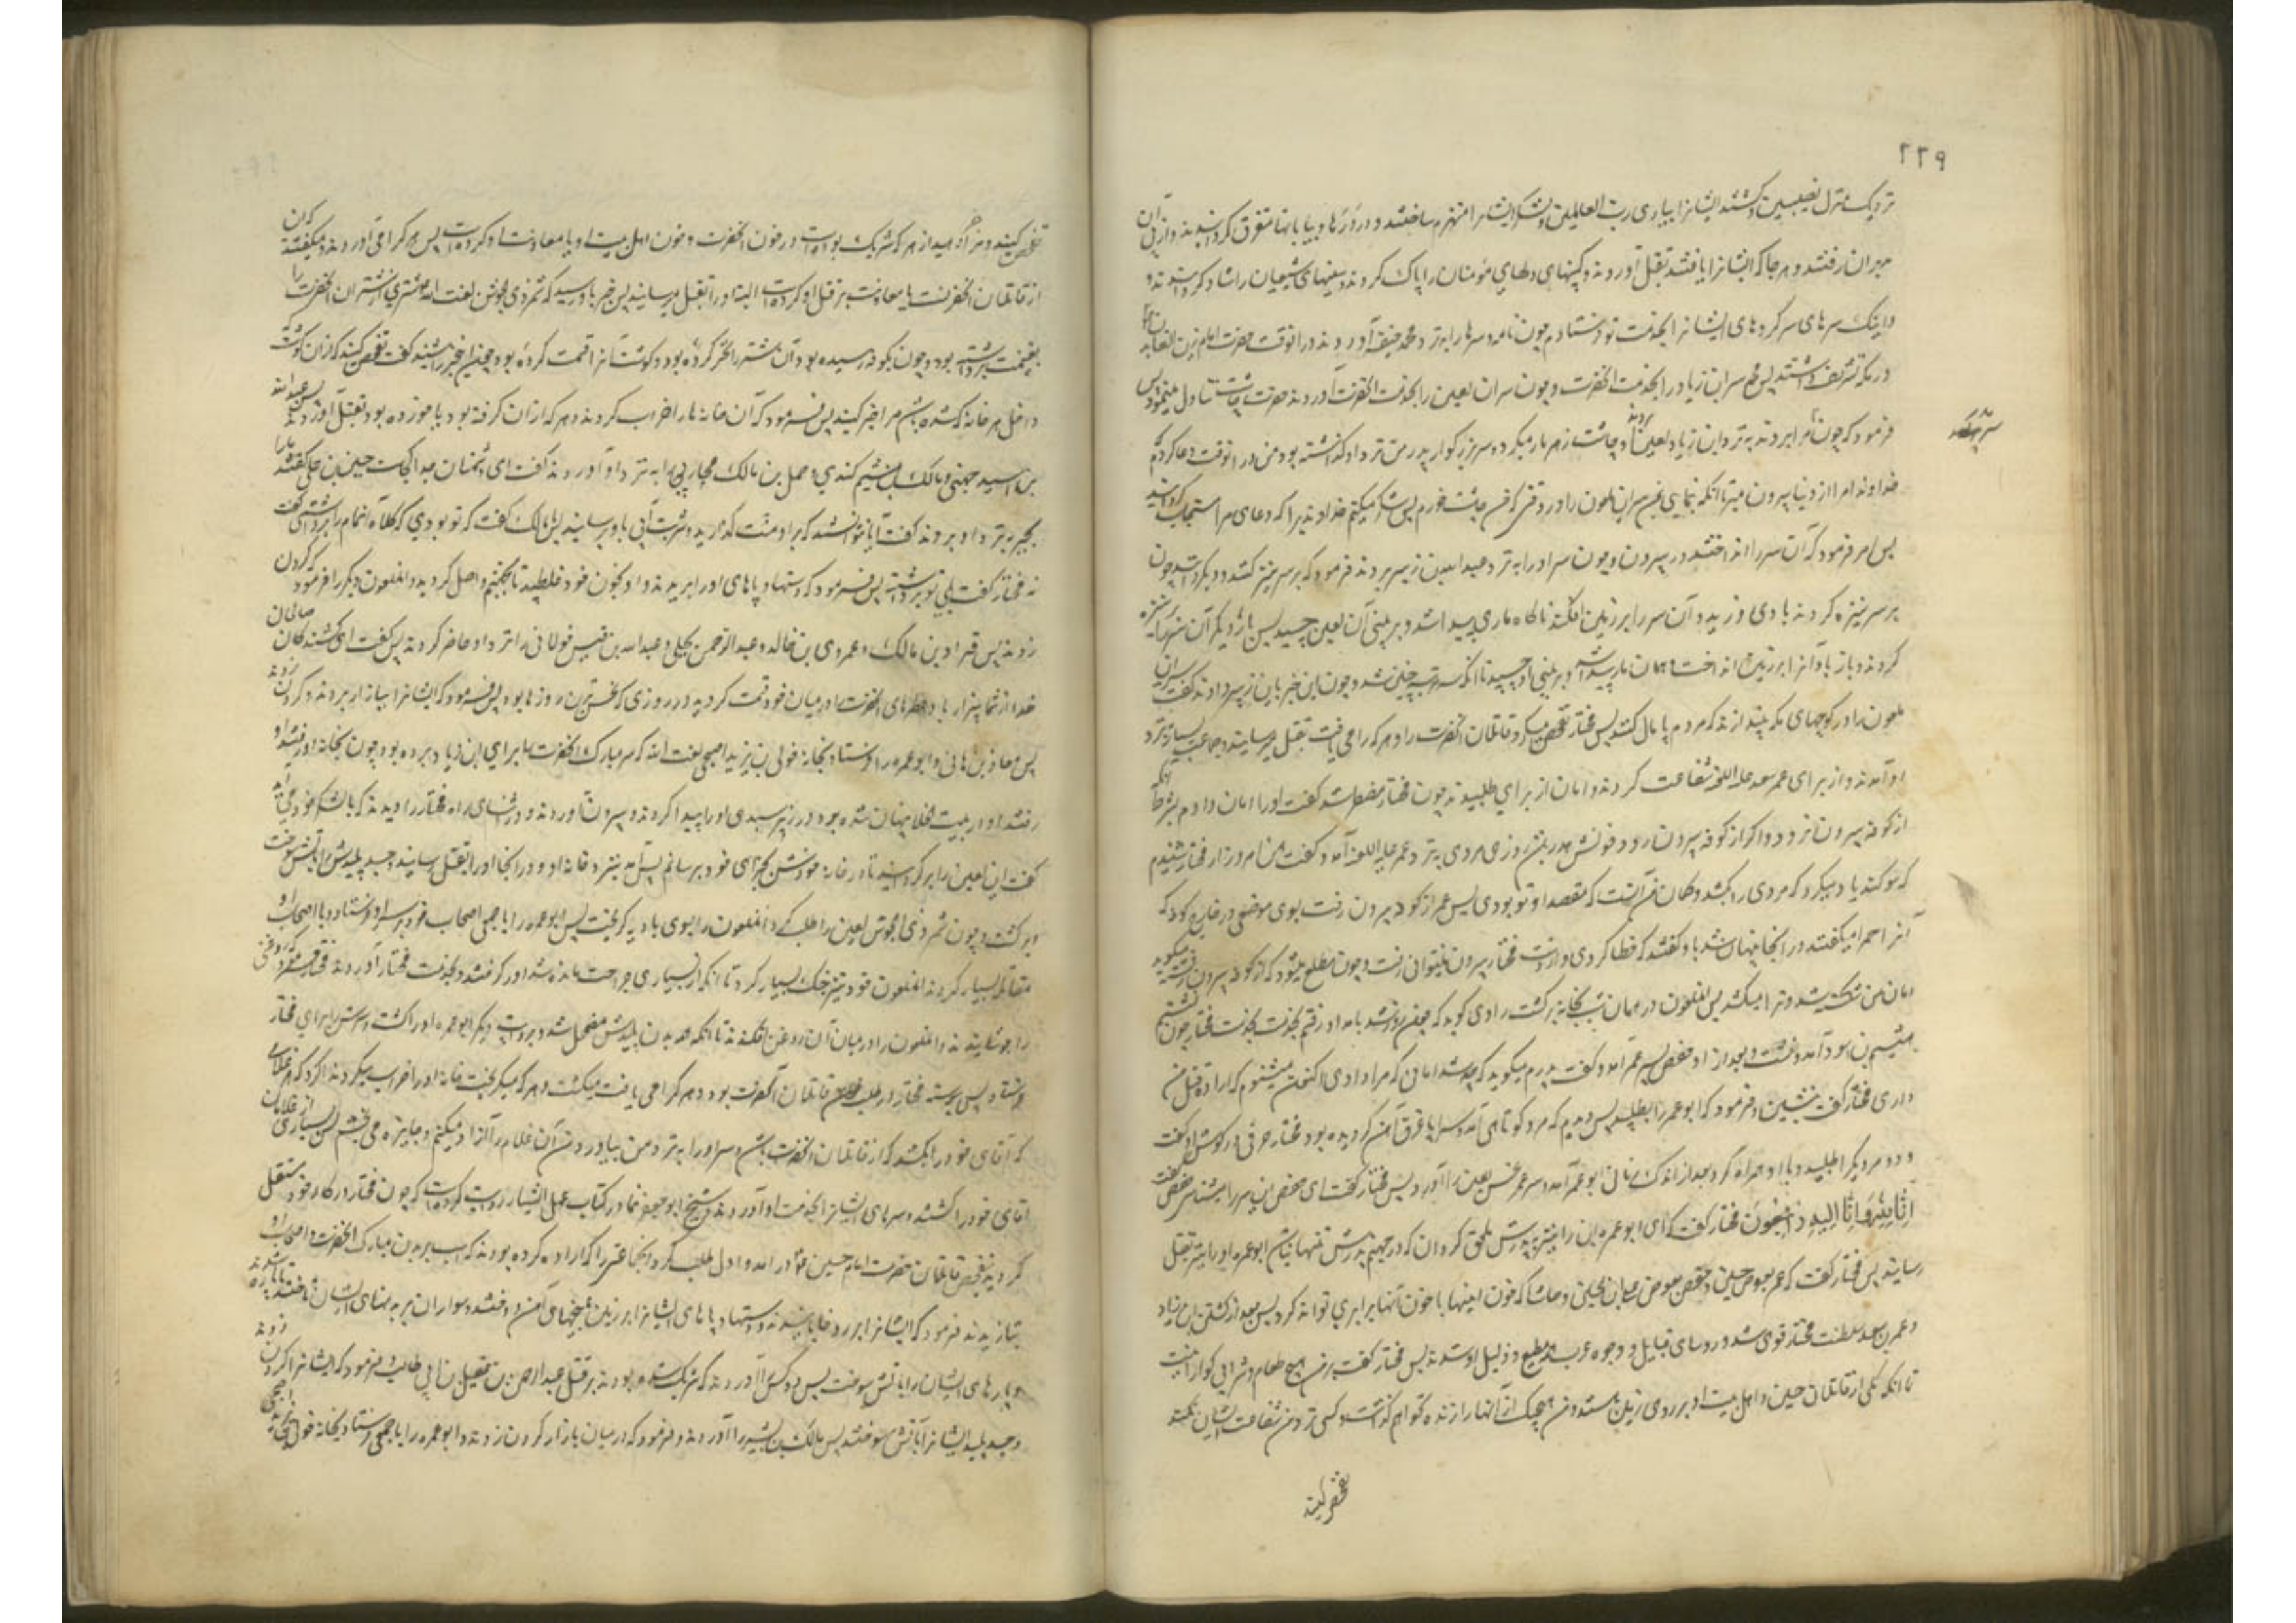 ۲۲۹
نزدیک منزل نصیبین و کشتند ایشانرا بیاری رب العالمین و لشکر ایشانرا منهزم ساختند و در دره‌ها و بیابانها متفرق گردانیدند و از پی آن
مدبران رفتند و هر جا که ایشانرا یافتند بقتل آوردند و کینهای دلهای مؤمنان را پاک کردند و سینهای شیعیان را شاد گردانیدند و
و اینک سرهای سرکردهای ایشانرا بخدمت تو فرستادم چون نامه و سرها را بنزد محمد حنفیه آوردند در آنوقت حضرت امام زین العابدین
در مکه تشریف داشتند پس محمد سر ابن زیاد را بخدمت آنحضرت و چون سر آن لعین را بخدمت آنحضرت آوردند حضرت چاشت تناول مینمود پس
فرمود که چون ما را بردند به نزد ابن زیاد لعین او چاشت زهر مار میکرد و سر بزرگوار پدر من نزد او گذاشته بود من در آنوقت دعا کردم که
خداوندا مرا از دنیا بیرون مبر تا آنکه بنمایی بمن سر این ملعون را در وقتی که من چاشت خورم پس شکر میکنم خداوندیرا که دعای مرا مستجاب گردانید
پس امر فرمود که آن سر را انداختند در بیرون و چون سر او را به نزد عبد الله بن زبیر بردند فرمود که بر سر نیزه کنند و بگردانند چون
بر سر نیزه کردند بادی وزید و آن سر را بر زمین افکند ناگاه ماری پیدا شد و بر بینی آن لعین چسبید پس بار دیگر آن سر را بر نیزه
کردند و باز باد آنرا بر زمین انداخت و همان مار پیدا شد و بر بینی او چسبید تا آنکه سه مرتبه چنین شد و چون این خبر بابن زبیر دادند گفت سر این
ملعون را در کوچهای مکه بیندازند که مردم پامال کنند پس مختار تفحص میکرد قاتلان آنحضرت را و هر که را می یافت بقتل میرسانید و جماعت بسیار نزد
او آمدند و از برای عمر سعد علیه اللعنه شفاعت کردند و امان از برای طلبیدند چون مختار مضطر شد گفت او را امان دادم بشرط آنکه
از کوفه بیرون نرود و اگر از کوفه بیرون رود خونش هدر باشد روزی مردی به نزد عمر علیه اللعنه آمد و گفت من امروز از مختار شنیدم
که سوگند یاد میکرد که مردی را بکشد و گمان من آنست که مقصد او تو بودی پس عمر از کوفه بیرون رفت بسوی موضعی در خارج کوفه که
آنرا حمرا میگفتند و در آنجا پنهان شد باو گفتند که خطا کردی و از دست مختار بیرون نمیتوانی رفت و چون مطلع میشود که از کوفه بیرون رفتی میگوید
امان من شکسته شد و ترا میکشد پس آنملعون در همان شب بخانه برگشت راوی گوید که چون روز شد بامداد رفتم بخدمت مختار چون نشستم
هیثم بن اسود آمد و نشست و بعد از او حفص پسر عمر آمد و گفت پدرم میگوید که چه شد امانی که مرا دادی اکنون میشنوم که اراده قتل من
داری مختار گفت بنشین و فرمود که ابوعمره را بطلبید پس دیدم که مرد کوتاهی آمد و سراپا غرق آهن گردیده بود مختار حرفی در گوش او گفت
و دو مرد دیگر را طلبید و با او همراه کرد بعد از اندک زمانی ابو عمره آمد و سر عمر نحس لعین را آورد پس مختار گفت ای حفص این سر را میشناسی حفص گفت
انا لله و انا الیه راجعون مختار گفت که ای ابو عمره این را نیز به پدرش ملحق گردان که در جهنم پدرش تنها نباشد ابوعمره او را نیز بقتل
رسانید پس مختار گفت که عمر بعوض حسین و حفص بعوض علی بن الحسین و حاشا که خون اینها با خون آنها برابری تواند کرد پس بعد از کشتن ابن زیاد
و عمر بن سعد سلطنت مختار قوی شد و روسای قبایل و وجوه عرب همه مطیع و ذلیل او شدند پس مختار گفت بر من هیچ طعام و شرابی گوارا نیست
تا آنکه یکی از قاتلان حسین و اهل بیت او بر روی زمین هستند و من هیچیک از آنها را زنده نخواهم گذاشت و کسی نزد من شفاعت ایشان نکند
تفحص کنید
تفحص کنید و مرا خبر دهید از هر که شریک بوده است در خون آنحضرت و خون اهل بیت او یا معاونت او کرده است پس هر که را می آوردند و میگفتند که این
از قاتلان آنحضرتست یا معاونت بر قتل او کرده است البته او را بقتل میرسانید پس خبر باو رسید که شمر ذی الجوشن لعنت الله شتری از شتران آنحضرت را
بغنیمت برداشته بود و چون بکوفه رسیده بود آن شتر را نحر کرده بود و گوشت آنرا قسمت کرده بود چون این خبر را شنید گفت تفحص کنید که از آن گوشت
داخل هر خانه که شده باشد مرا خبر کنید پس فرمود که آن خانه ها را خراب کردند و هر که از آن گرفته بود یا خورده بود بقتل آوردند پس عبد الله
بن اسید جهنی و مالک بن هشیم کندی و حمل بن مالک محاربی را به نزد او آوردند گفت ای دشمنان خدا کجاست حسین بن علی گفتند ما را
بجبر به نزد او بردند گفت آیا نتوانستید که بر او منت گذارید و شربت آبی باو برسانید پس بمالک گفت که تو بودی که کلاه امام را برداشتی گفت
نه مختار گفت بلی تو برداشتی پس فرمود که دستها و پاهای او را بریدند و او بخون خود غلطید تا بجهنم واصل گردید و آنملعون دیگر را فرمود گردن
زدند پس قراد بن مالک و عمرو بن خالد و عبد الرحمن بجلی و عبد الله بن قیس خولانی را نزد او حاضر کردند پس گفت ای کشندگان صالحان
خدا از شما بیزار باد عطرهای آنحضرت را در میان خود قسمت کردید در روزی که نحس ترین روزها بود پس فرمود که ایشانرا ببازار بردند و گردن زدند
پس معاذ بن هانی و ابوعمره را فرستاد بخانه خولی بن یزید اصبحی لعنت الله که سر مبارک آنحضرت را برای ابن زیاد برده بود چون بخانه او رسیدند
رفتند او در بیت الخلا پنهان شده بود در زیر سبدی او را پیدا کردند و بیرون آوردند و در اثنای راه مختار را دیدند که با لشکر خود می آمد
گفت این لعین را برگردانید تا در خانه خودش بجزای خود برسانم پس آمد بنزد خانه او و در آنجا او را بقتل رسانید و جسد پلیدش را بآتش سوخت
و برگشت و چون شمر ذی الجوشن لعین را طلب کرد آنملعون را بسوی بادیه گریخت پس ابوعمره را با جمعی اصحاب خود بر سر او فرستاد و با اصحاب او
مقاتله بسیار کردند آنملعون خود نیز جنگ بسیار کرد تا آنکه از بسیاری جراحت مانده شد او را گرفتند و بخدمت مختار آوردند مختار فرمود که روغنی
را جوشانیدند و آنملعون را در میان آن روغن افکندند تا آنکه همه بدن پلیدش مضمحل شد و بروایت دیگر ابو عمره او را کشت و سرش را برای مختار
فرستاد پس پیوسته مختار در طلب قاتلان آنحضرت بود و هر که را می یافت میکشت و هر که میگریخت خانه او را خراب میکرد و ندا کرد که هر غلامی
که آقای خود را بکشد که از قاتلان آنحضرت باشد و سر او را به نزد من بیاورد من آن غلام را آزاد میکنم و جایزه می بخشم پس بسیاری از غلامان
آقای خود را کشتند و سرهای ایشانرا بخدمت او آوردند و شیخ ابو جعفر نما در کتاب عمل الثار روایت کرده است که چون مختار در کار خود مستقل
گردید بتفحص قاتلان حضرت امام حسین ع در آمد و اول طلب کرد آنجماعتی را که اراده کرده بودند که اسب بر بدن مبارک آنحضرت و اصحاب او
بتازند فرمود که ایشانرا بر رو خوابانیدند و دستها و پاهای ایشانرا بر زمین بمیخهای آهن دوختند و سواران بر بدنهای ایشان تاختند تا پاره شدند
و پارهای ایشان را بآتش سوخت پس دو کس را آوردند که شریک شده بودند بر قتل عبد الرحمن بن عقیل بن ابی طالب فرمود که ایشانرا گردن زدند
و جسد پلید ایشانرا بآتش سوختند پس مالک بن بشیر را آوردند و فرمود که در میان بازار گردن زدند و ابوعمره را با جمعی فرستاد بخانه خولی بن یزید اصبحی